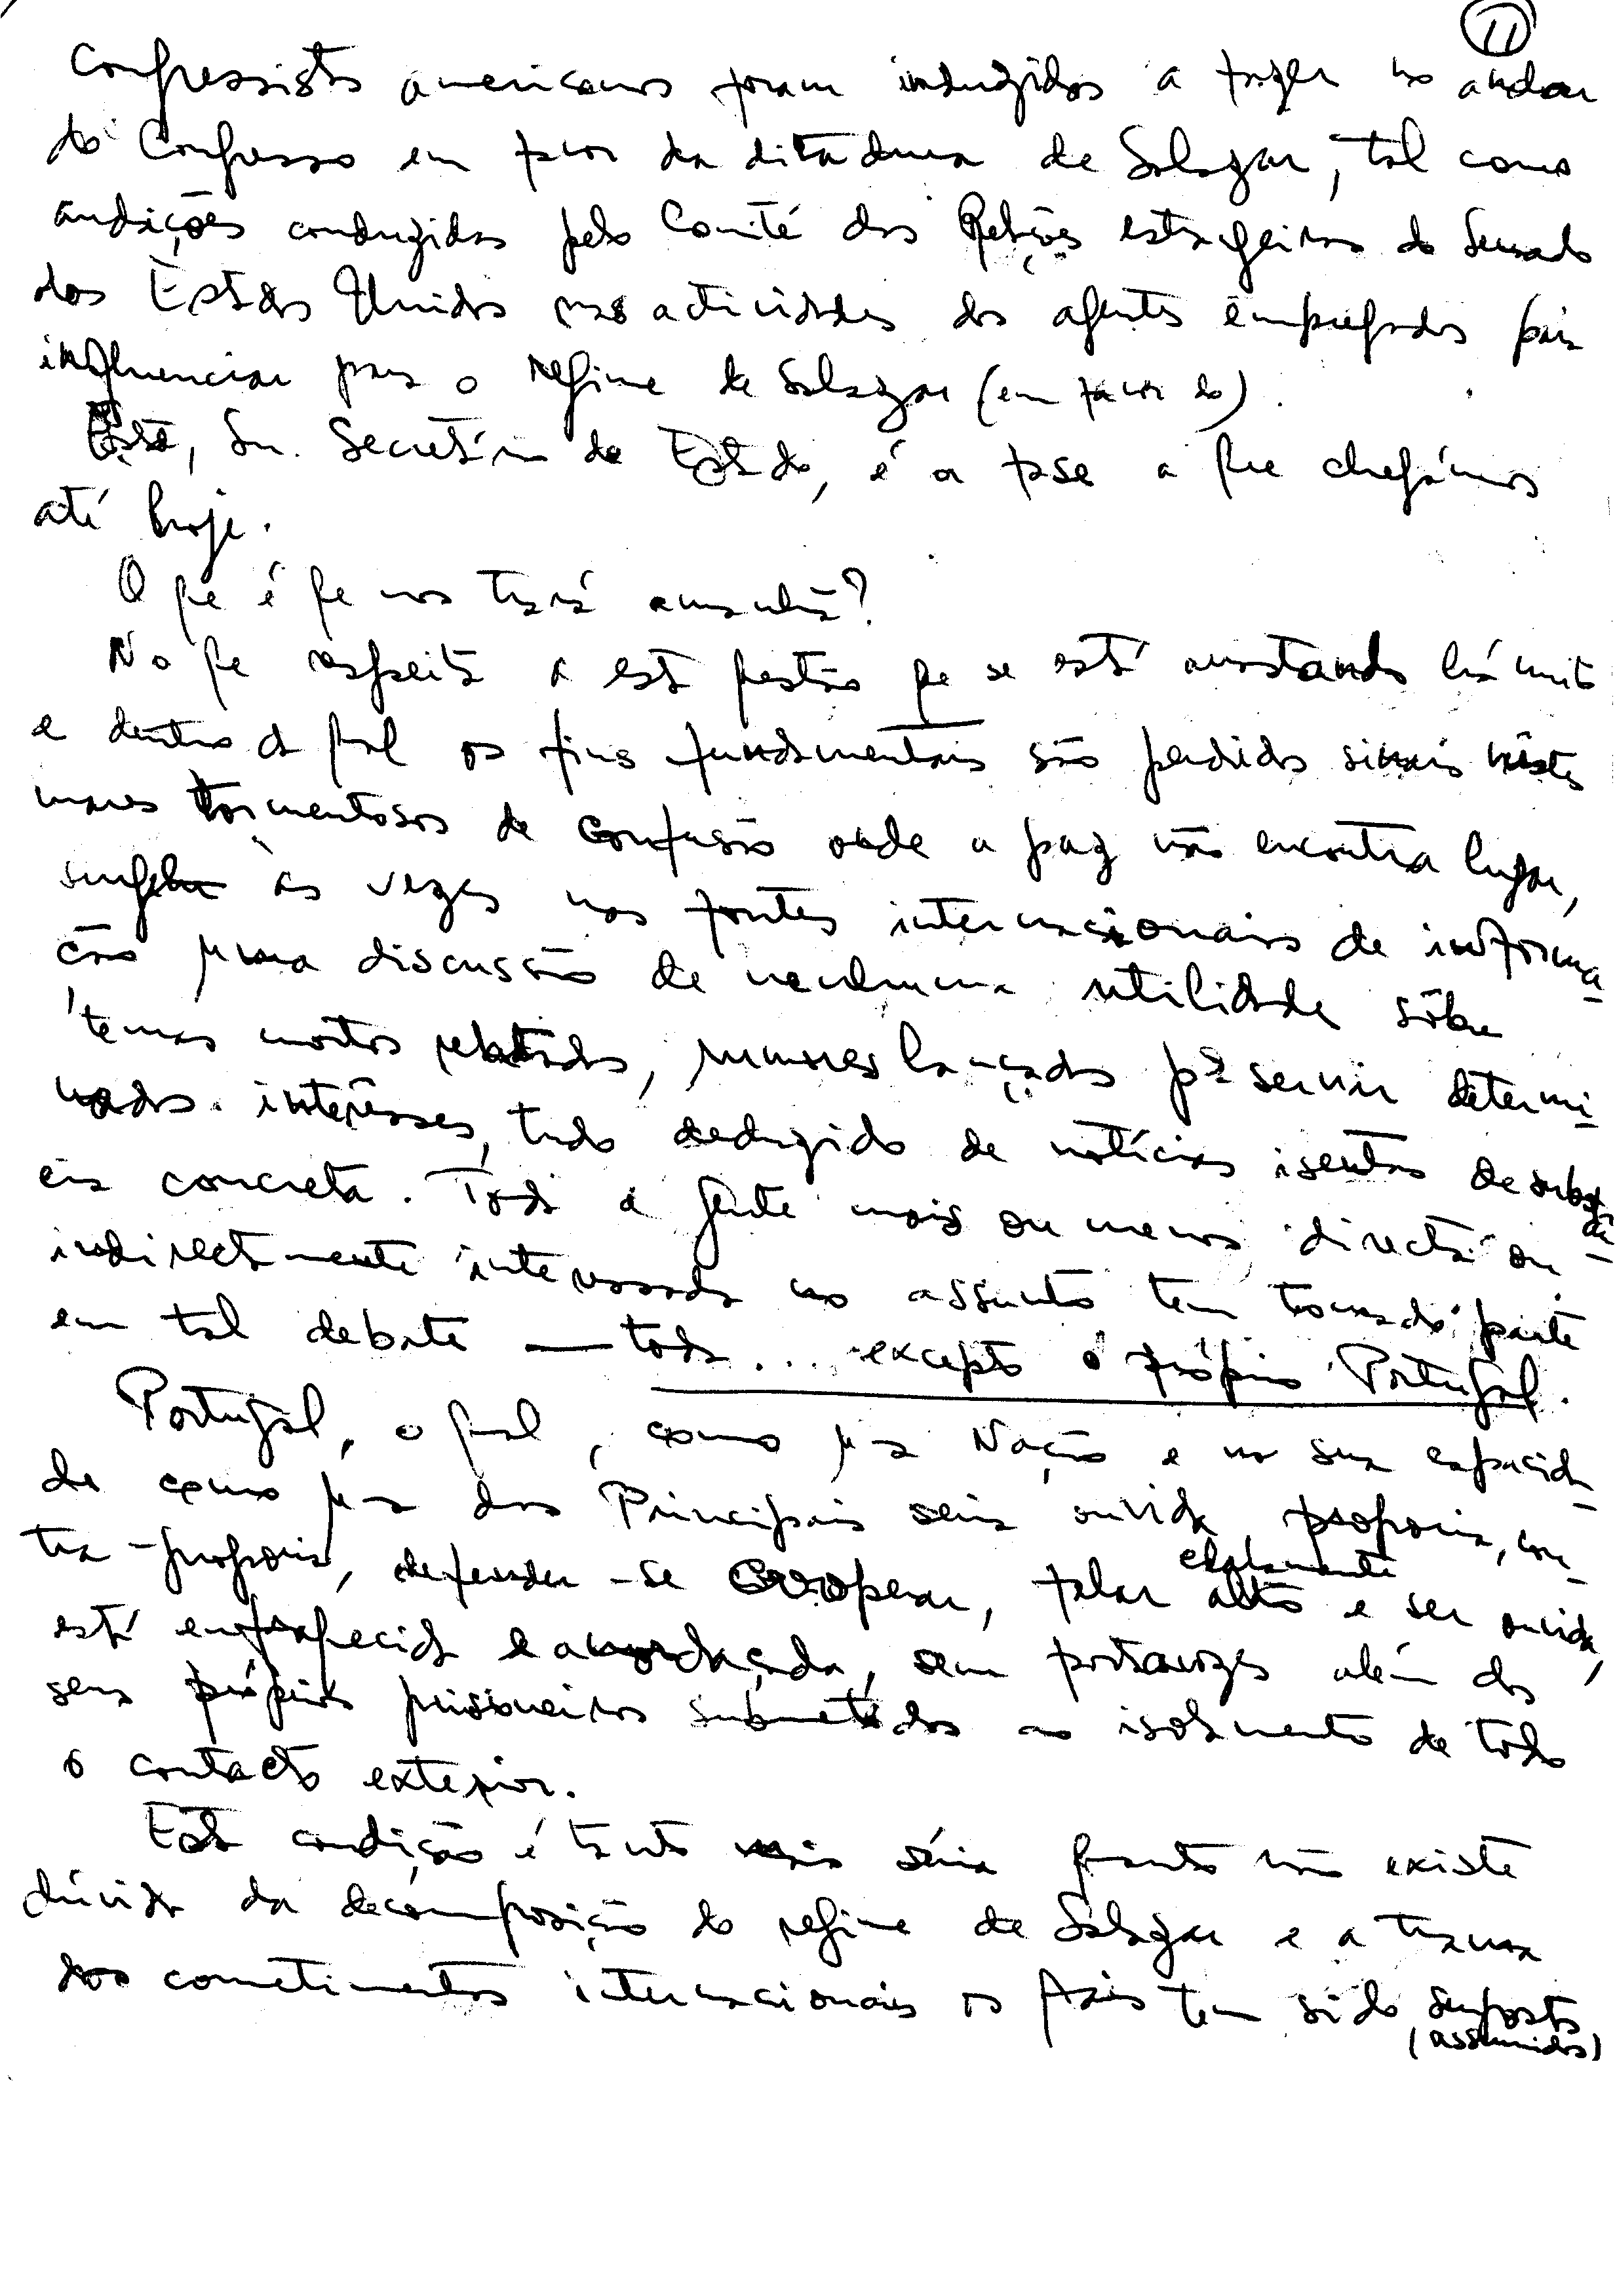 11
Congressistas americanos foram induzidos a fazer no andar
do Congresso em favor da ditadura de Salazar, tal como
audições conduzidas pelo Comité das Relações estrangeiras do Senado
dos Estados Unidos nas actividades dos agentes empregados para
influenciar para o regime de Salazar (em favor do).
Esta, Sr. Secretário de Estado, é a fase a que chegámos
até hoje.
O que é que nos trará amanhã?
No que respeita a esta questão que se está arrastando há muito
e dentro da qual os fins fundamentais são perdidos sinais nestes
mares tormentosos de confusão onde a paz não encontra lugar,
surge às vezes nas fontes internacionais de informa-
ção uma discussão de nenhuma utilidade sôbre
temas mortos, rumores lançados pª servir determi-
nados interêsses, tudo deduzido de notícias isentas de substân-
cia concreta. Toda a gente mais ou menos directa ou
indirectamente interessada no assunto tem tomado parte
em tal debate — toda ... excepto o próprio Portugal.
Portugal, o qual, como uma Nação e na sua capacida-
de como uma das Principais seria ouvida, proporia, con-
tra-proporia, defender-se cooperar, falar alto claramente e ser ouvida,
está enfraquecida e amordaçada, sem portavozes além dos
seus próprios prisioneiros submetidos ao isolamento de todo
o contacto exterior.
Esta condição é tanto mais séria quanto não existe
dúvida da decomposição do regime de Salazar e a trama
dos cometimentos internacionais o País tem sido suposto
(assumidos)